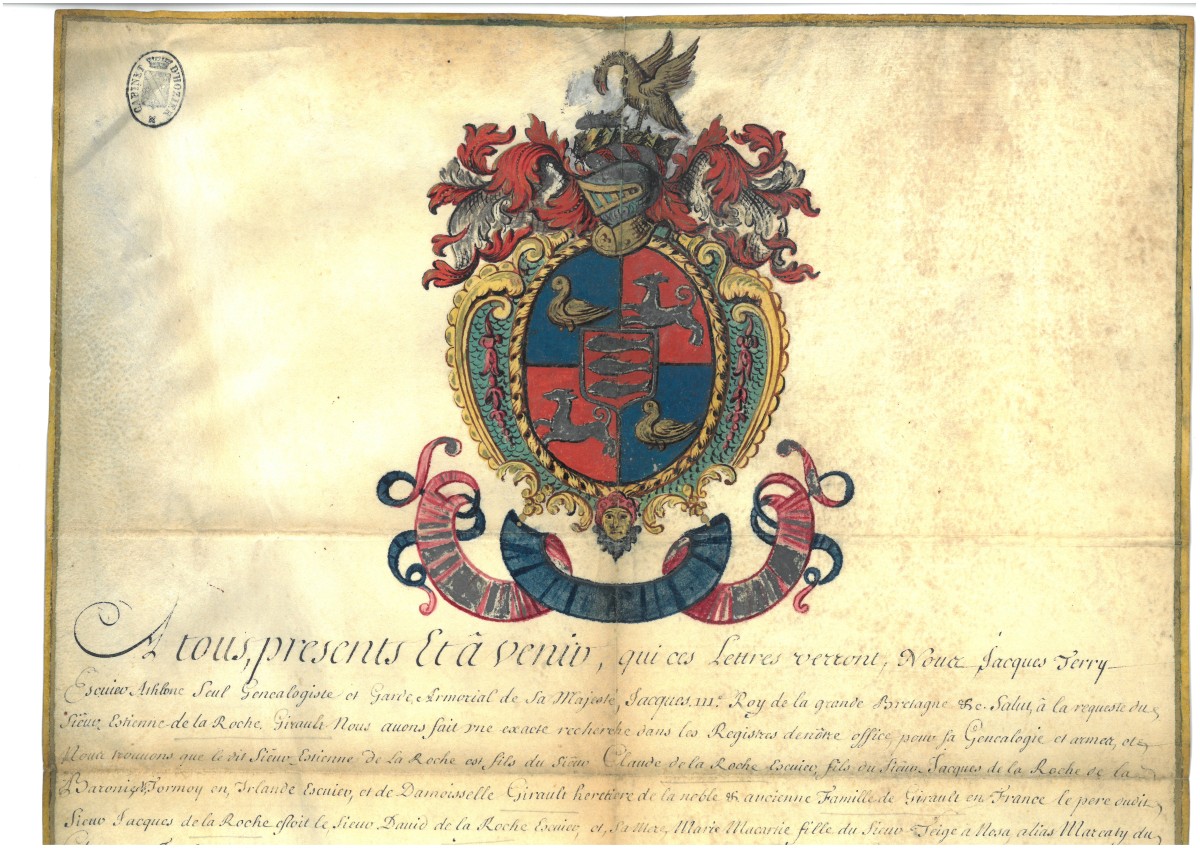 CABINET D'HOZIER
A tous, presents Et â venir, qui ces Lettres verront, Nous Jacques Terry
Escuier Athlone Seul Genealogiste et Garde Armorial de Sa Majesté, Jacques III.e Roy de la grande Bretagne &c. Salut, à la requeste du
Siëur Estienne de la Roche Girault Nous auons fait vne exacte recherche dans les Registres de nôtre office, pour sa Genealogie et armes, et
Nous trouuons que le dit Siëur Estienne de la Roche est fils du Siëur Claude de la Roche Escuier, fils du Siëur Jacques de la Roche de la
Baronie Formoy en Irlande Escuier, et de Damoisselle Girault heretiere de la noble & ancienne Famille de Girault en France le pere dudit
Siëur Jacques de la Roche estoit le Siëur Dauid de la Roche Escuier, et, Sa Mere, Marie Macartie fille du Siëur Teige a Nosa, alias Marcaty du